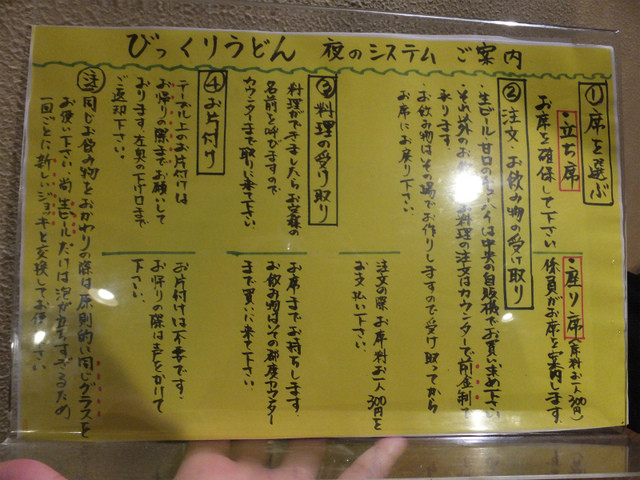 びっくりうどん 夜のシステム ご案内
①席を選ぶ
・立ち席
お席を確保して下さい
・座り席(席料お一人300円)
係員がお席を案内します。
②注文・お飲み物の受け取り
・生ビール、甘口の
は中央の自販機でお買い求め下さい
・それ以外のお
料理の注文はカウンターで前金制で
承ります。
・お飲み物はその場でお作りしますので受け取ってから
お席にお戻り下さい。
注文の際お席料お一人300円を
お支払い下さい。
③料理の受け取り
料理ができましたらお客様の
名前を呼びますので
カウンターまで取りに来て下さい。
お席までお持ちします。
お飲み物はその都度カウンター
まで買いに来て下さい。
④お片付け
テーブル上のお片付けは
お帰りの際までお願いして
おります。左奥の下げ口まで
ご返却下さい。
お片付けは不要です。
お帰りの際は声をかけて
下さい。
注 同じお飲み物をおかわりの際は原則的に同じグラスを
お使い下さい。尚生ビールだけは泡が立ちすぎるため
一回ごとに新しいジョッキと交換してお使い下さい。